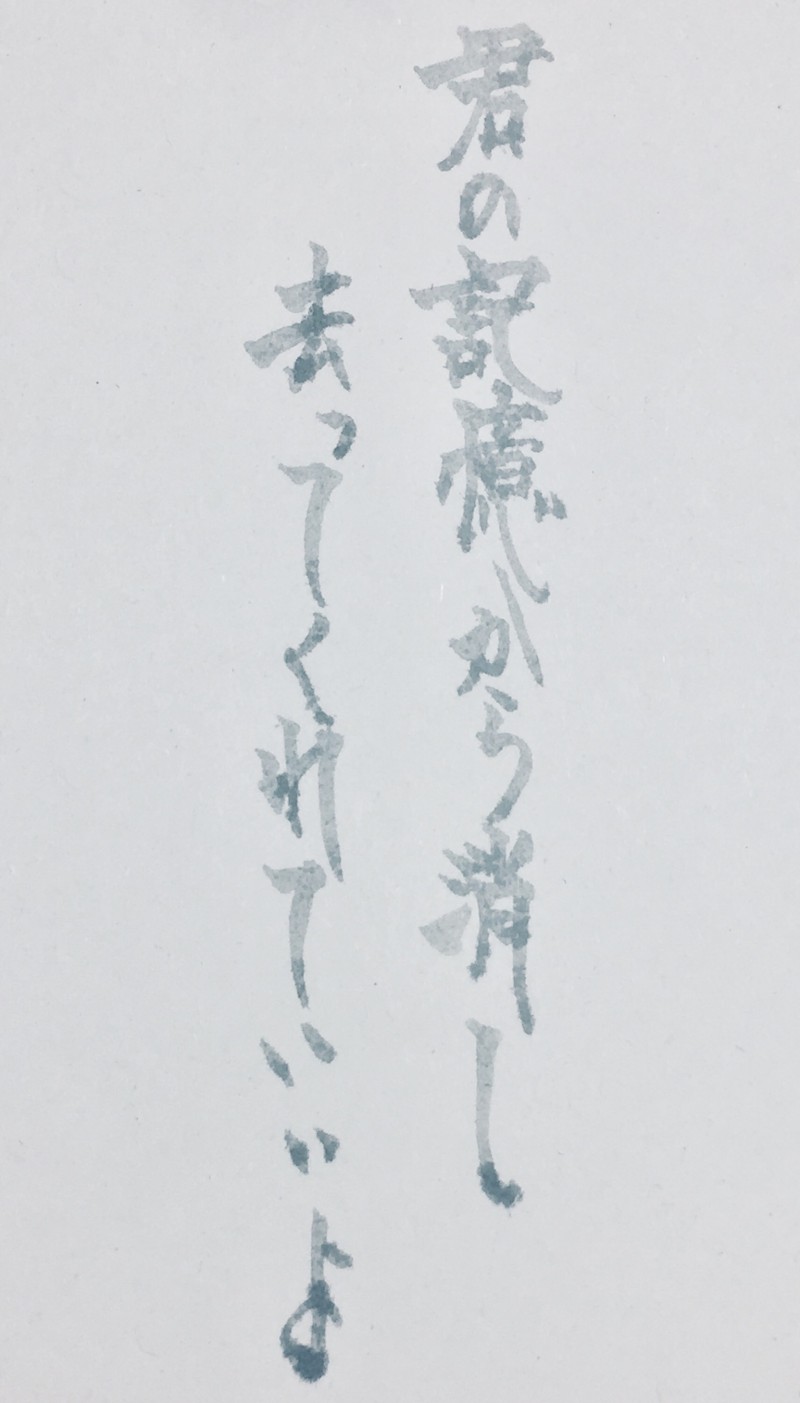 君の記憶から消し
去ってくれていいよ